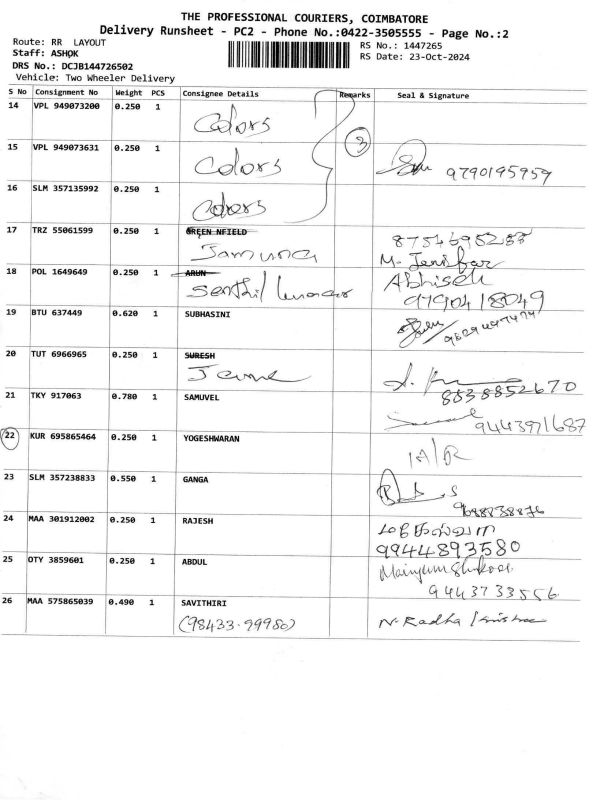 THE PROFESSIONAL COURIERS, COIMBATORE
Delivery Runsheet - PC2 - Phone No.:0422-3505555 - Page No.:2
Route: RR LAYOUT
RS No.: 1447265
Staff: ASHOK
RS Date: 23-Oct-2024
DRS No.: DCJB144726502
Vehicle: Two Wheeler Delivery
S No Consignment No Weight PCS Consignee Details Remarks Seal & Signature
14 VPL 949073200 0.250 1 Colors
3
15 VPL 949073631 0.250 1 Colors 9790195959
16 SLM 357135992 0.250 1 Colors
17 TRZ 55061599 0.250 1 GREEN NFIELD
Jamuna M. Jenifar
18 POL 1649649 0.250 1 ARUN Abhisek
Senthil kumar 9790418049
19 BTU 637449 0.620 1 SUBHASINI
20 TUT 6966965 0.250 1 SURESH
8838852670
21 TKY 917063 0.780 1 SAMUVEL
9443971687
22 KUR 695865464 0.250 1 YOGESHWARAN
23 SLM 357238833 0.550 1 GANGA
9688838876
24 MAA 301912002 0.250 1 RAJESH
9944893580
25 OTY 3859601 0.250 1 ABDUL
9443733556
26 MAA 575865039 0.490 1 SAVITHIRI
(98433-99980) N. Radha